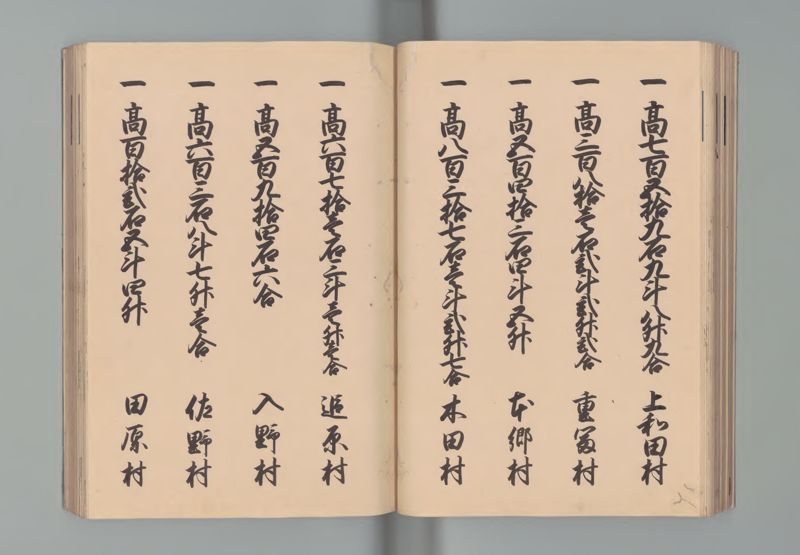 一高七百五拾九石九斗八升九合 上和田村
一高三百八拾壱石弐斗弐升弐合 重冨村
一高五百四拾三石四斗五升 本郷村
一高八百三拾七石壱斗弐升七合 木田村
一高六百七拾壱石三斗壱升壱合 追原村
一高五百九拾四石六合 入野村
一高六百三石八斗七升壱合 佐野村
一高百拾弐石五斗四升 田原村